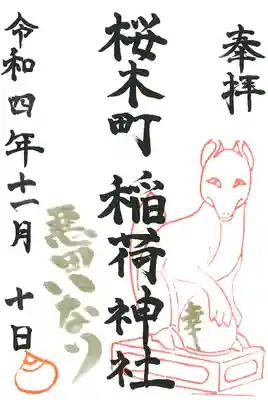 奉拝
桜木町 稲荷神社
令和四年十一月 十日
いなり
幸